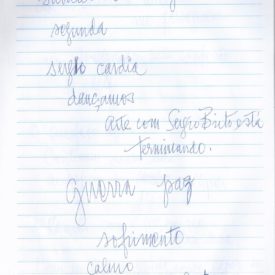 segunda
sergio cardia
dançamos
Arte com Sergio Brito está
terminando.
guerra paz
sofrimento
calmo